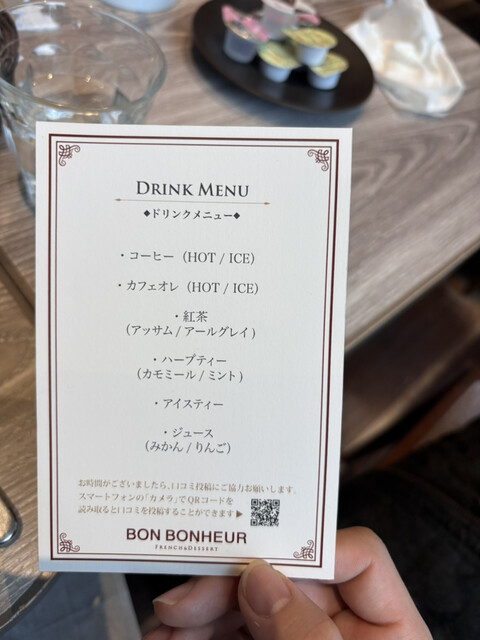 DRINK MENU
◆ドリンクメニュー◆
・コーヒー（HOT / ICE）
・カフェオレ（HOT / ICE）
・紅茶
（アッサム / アールグレイ）
・ハーブティー
（カモミール / ミント）
・アイスティー
・ジュース
（みかん / りんご）
お時間がございましたら、口コミ投稿にご協力お願いします。
スマートフォンの「カメラ」でQRコードを
読み取ると口コミを投稿することができます▶
BON BONHEUR
FRENCH&DESSERT